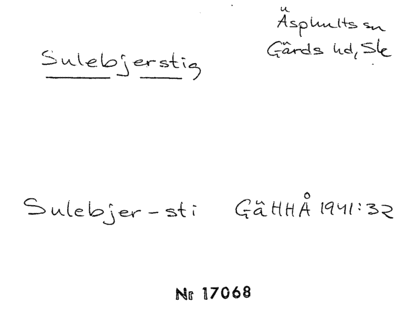 Äsphults sn
Sulebjerstig
Gärds hd, Sk
Sulebjer-sti GäHHÅ 1941:32
Nr 17068